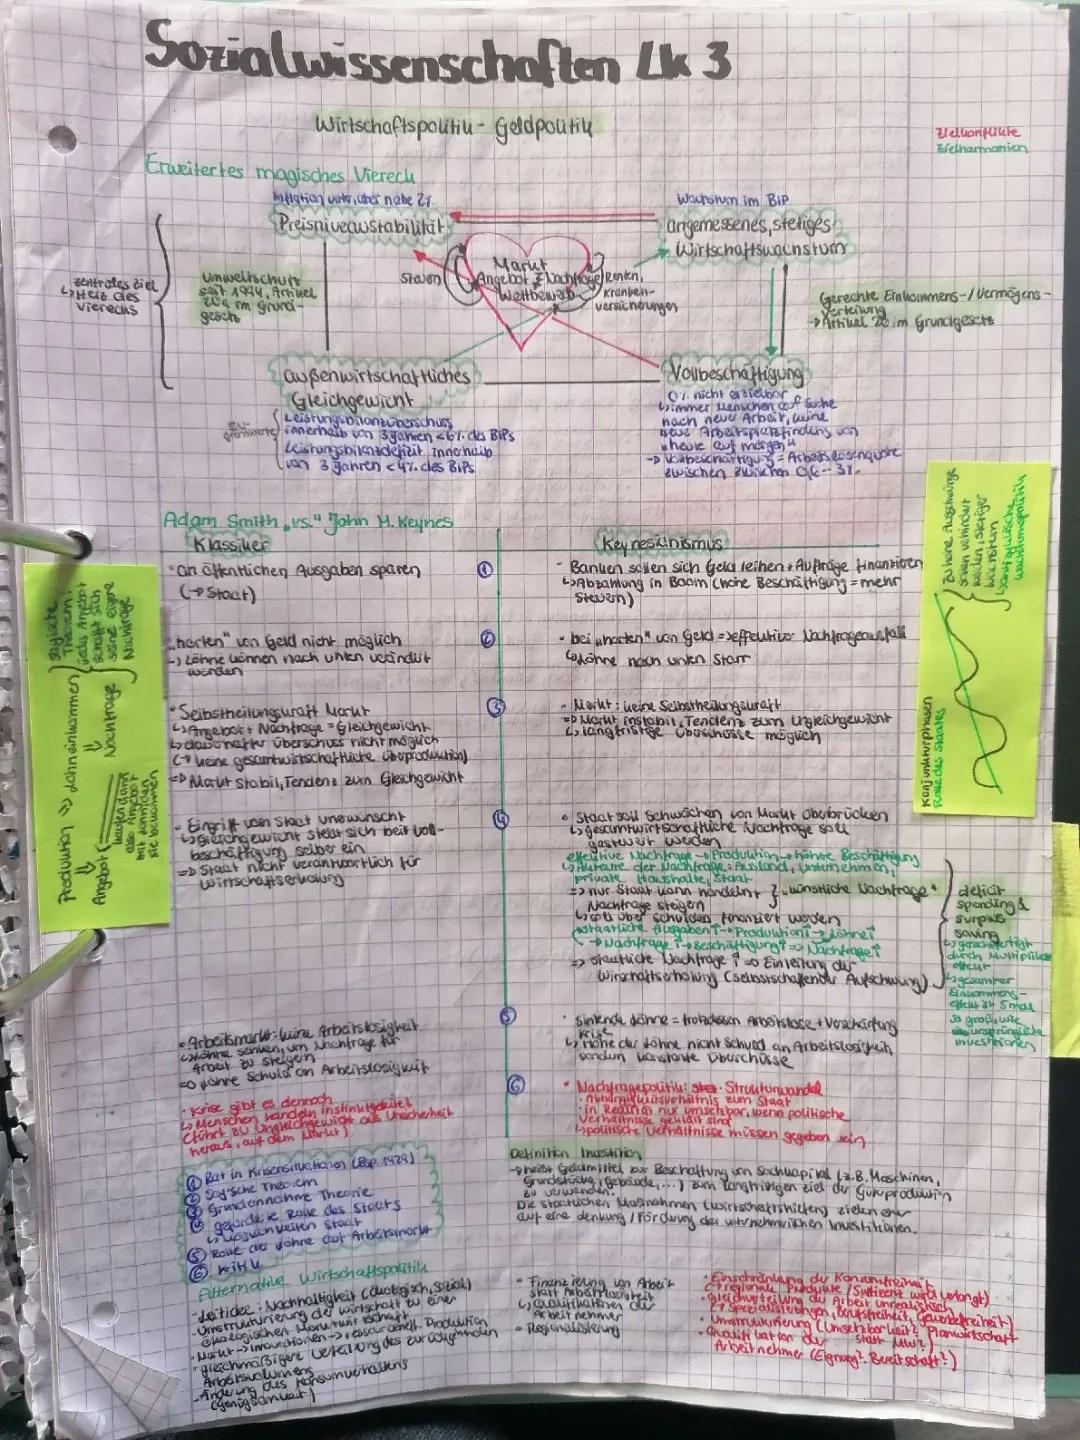 Sozialwissenschaften Lk 3
Wirtschaftspolitik - Geldpolitik
Zielkonflikte
Zielharmonien
Erweitertes magisches Viereck
Inflation unter, aber nahe 2%
Preisniveaustabilität
Wachstum im BiP
angemessenes, stetiges
Wirtschaftswachstum
zentrales Ziel
↳ Herz des
Vierecks
Umweltschutz
seit 1994, Artikel
20a im Grund-
gesetz
Steuern
Markt
Angebot & Nachfrage
Wettbewerb
Renten,
Kranken-
versicherungen
Gerechte Einkommens-/Vermögens-
verteilung
→ Artikel 20 im Grundgesetz
außenwirtschaftliches
Gleichgewicht
Leistungsbilanzüberschuss
innerhalb von 3 Jahren <6% des BiPs
Leistungsbilanzdefizit innerhalb
von 3 Jahren <4% des BiPs
Vollbeschäftigung
0% nicht erzielbar
↳ immer Menschen auf Suche
nach neuer Arbeit, keine
neue Arbeitsplatzfindung von
"heute auf morgen"
→ Vollbeschäftigung = Arbeitslosenquote
zwischen zwischen
Adam Smith "vs." John M. Keynes
Klassiker
Keynesianismus
①
- an öffentlichen Ausgaben sparen
(→ Staat)
- Banken sollen sich Geld leihen + Aufträge finanzieren
↳ Abzahlung in Boom (hohe Beschäftigung = mehr
Steuern)
②
"horten" von Geld nicht möglich
→ Löhne können nach unten verändert
werden
• bei "horten" von Geld => effektiver Nachfrageausfall
↳ Löhne nach unten starr
③
• Selbstheilungskraft Markt
↳ Angebot + Nachfrage = Gleichgewicht
↳ dauerhafter Überschuss nicht möglich
(→ keine gesamtwirtschaftliche Überproduktion)
=> Markt stabil, Tendenz zum Gleichgewicht
- Markt: keine Selbstheilungskraft
=> Markt instabil, Tendenz zum Ungleichgewicht
↳ langfristige Überschüsse möglich
④
- Eingriff vom Staat unerwünscht
↳ Gleichgewicht stellt sich bei Voll-
beschäftigung selber ein
=> Staat nicht verantwortlich für
Wirtschaftserholung
• Staat soll Schwächen von Markt überbrücken
↳ gesamtwirtschaftliche Nachfrage soll
gesteuert werden
effektive Nachfrage → Produktion → höhere Beschäftigung
↳ Akteure der Nachfrage: Ausland, Unternehmen,
private Haushalte, Staat
=> nur Staat kann handeln +
Nachfrage steigern
} "künstliche Nachfrage"
↳ soll über Schulden finanziert werden
(staatliche Ausgaben ↑ → Produktion ↑ → Löhne ↑
→ Nachfrage ↑ → Beschäftigung ↑ => Nachfrage ↑
=> staatliche Nachfrage ↑ => Einleitung der
Wirtschaftserholung (selbstschaffender Aufschwung)
deficit
spending &
surplus
saving
↳ gerechtfertigt
durch Multiplikator
effekt
↳ gesamter
Einkommens-
effekt ist 5mal
so groß, wie
ursprüngliche
Investitionen
⑤
• Arbeitsmarkt: keine Arbeitslosigkeit
↳ Löhne senken, um Nachfrage für
Arbeit zu steigern
=> Löhne Schuld an Arbeitslosigkeit
- sinkende Löhne = trotzdessen Arbeitslose + Verschärfung
Krise
↳ Höhe der Löhne nicht Schuld an Arbeitslosigkeit,
sondern konstante Überschüsse
⑥
• Krise gibt es dennoch
↳ Menschen handeln instinktgeleitet
(führt zu Ungleichgewicht aus Unsicherheit
heraus, auf dem Markt)
• Nachfragepolitik: Strukturwandel
• Abhängigkeitsverhältnis zum Staat
• in Realität nur umsetzbar, wenn politische
Verhältnisse geklärt sind
↳ politische Verhältnisse müssen gegeben sein
① Rat in Krisensituationen (Bsp. 1929)
② Say'sche Theorem
③ Grundannahme Theorie
④ geforderte Rolle des Staats
↳ Möglichkeiten Staat
⑤ Rolle der Löhne auf Arbeitsmarkt
⑥ Kritik
Definition Investition
→ heißt Geldmittel zur Beschaffung von Sachkapital (z.B. Maschinen,
Grundstücke, Gebäude, ...) zum langfristigen Ziel der Güterproduktion
zu verwenden.
Die staatlichen Maßnahmen (Wirtschaftshilfen) zielen eher
auf eine Lenkung / Förderung der unternehmerischen Investitionen.
Alternative Wirtschaftspolitik
- Leitidee: Nachhaltigkeit (ökologisch, sozial)
- Umstrukturierung der Wirtschaft zu einer
ökologischen
• Markt → Innovationen → ressourceneff. Produktion
• gleichmäßigere Verteilung des zurückgehenden
Arbeitsvolumens
- Änderung des Konsumverhaltens
(Genügsamkeit)
• Finanzierung von Arbeit
statt Arbeitslosigkeit
↳ Qualifikationen der
Arbeitnehmer
• Regionalisierung
• Einschränkung der Konsumfreiheit
(→ regionale Produkte / Suffizienz wird verlangt)
• Gleichverteilung der Arbeit unrealistisch
(→ Spezialisierungen, Berufsfreiheit, Gewerbefreiheit)
• Umstrukturierung (Umsetzbarkeit? Planwirtschaft
statt MW?)
• Qualifikation der
Arbeitnehmer (Eignung? Bereitschaft?)
Produktion => Lohneinkommen
⇓
Angebot
⇓
Nachfrage
kaufen damit
das Angebot
mit dem Geld, das
sie bekommen
Saysche
Theorem:
jedes Angebot
schafft sich
seine eigene
Nachfrage
Konjunkturphasen
Rolle des Staates
zu hohe Ausschläge
sollen verhindert
werden, stetiger
Wachstum
↳ antizyklische